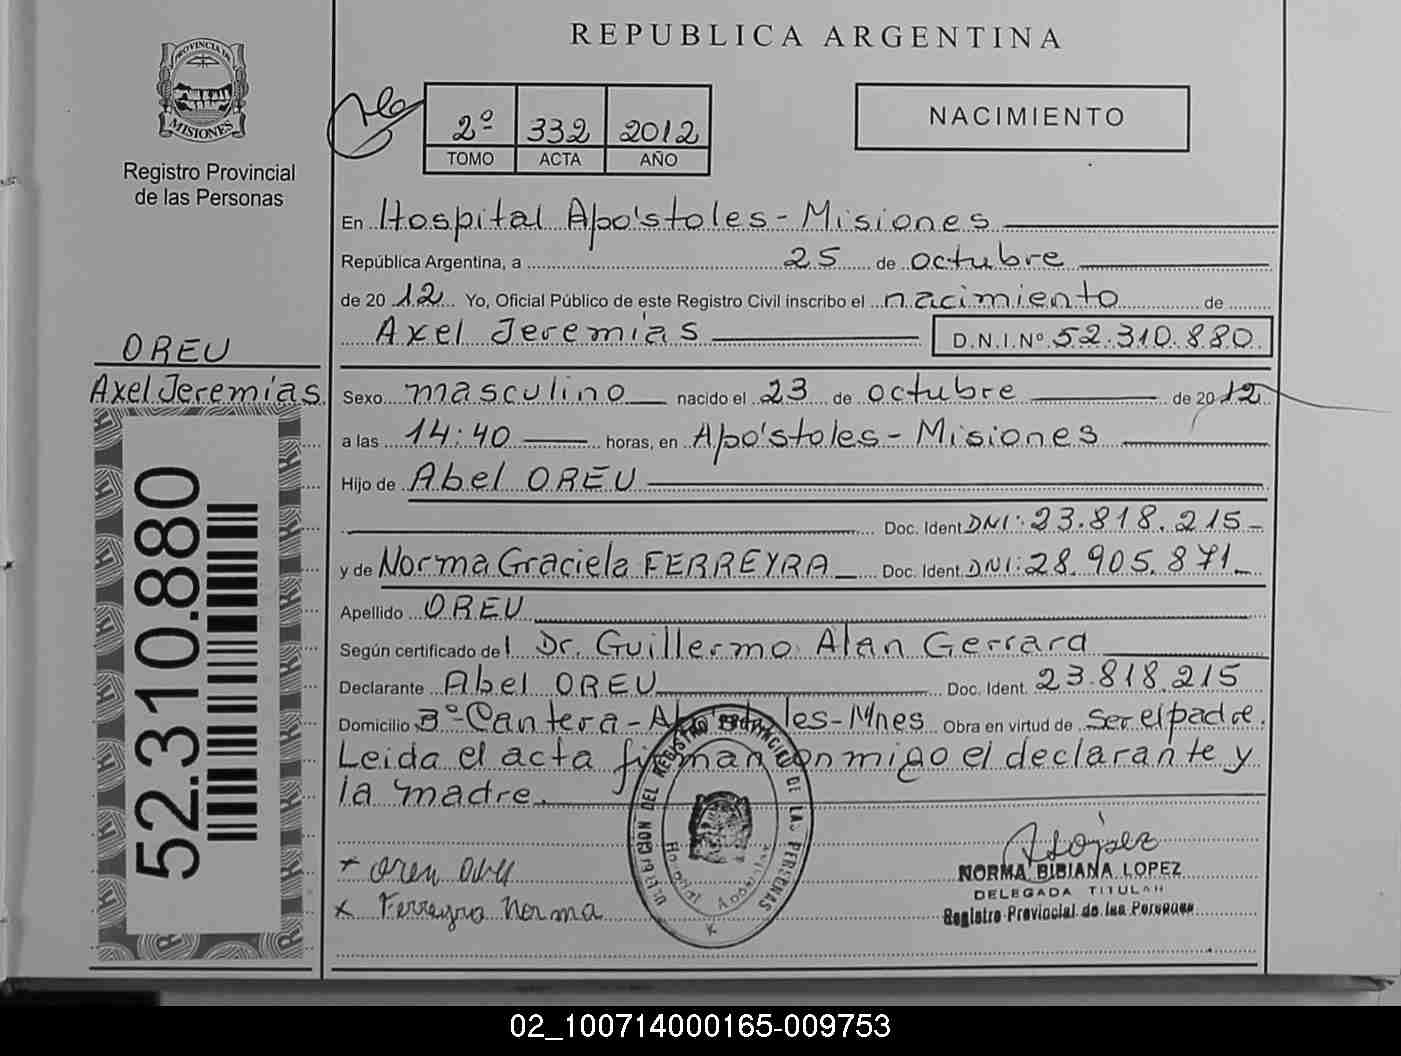 REPUBLICA ARGENTINA
PROVINCIA DE
MISIONES
Registro Provincial
de las Personas
2º 332 2012
TOMO ACTA AÑO
NACIMIENTO
En Hospital Apóstoles - Misiones
República Argentina, a 25 de octubre
de 2012 Yo, Oficial Público de este Registro Civil inscribo el nacimiento de
Axel Jeremías D.N.I.Nº 52.310.880
OREU
Axel Jeremías
52.310.880
Sexo masculino nacido el 23 de octubre de 2012
a las 14:40 horas, en Apóstoles - Misiones
Hijo de Abel OREU
Doc. Ident. DNI: 23.818.215
y de Norma Graciela FERREYRA Doc. Ident. DNI: 28.905.871
Apellido OREU
Según certificado del Dr. Guillermo Alan Gerrard
Declarante Abel OREU Doc. Ident. 23.818.215
Domicilio Bº Cantera - Apóstoles - Mnes Obra en virtud de ser el padre.
Leida el acta firman conmigo el declarante y
la madre.
DELEGACION DEL REGISTRO PROVINCIAL DE LAS PERSONAS
Hospital Apóstoles
Oreu Abel
x Ferreyra Norma
NORMA BIBIANA LOPEZ
DELEGADA TITULAR
Registro Provincial de las Personas
02_100714000165-009753